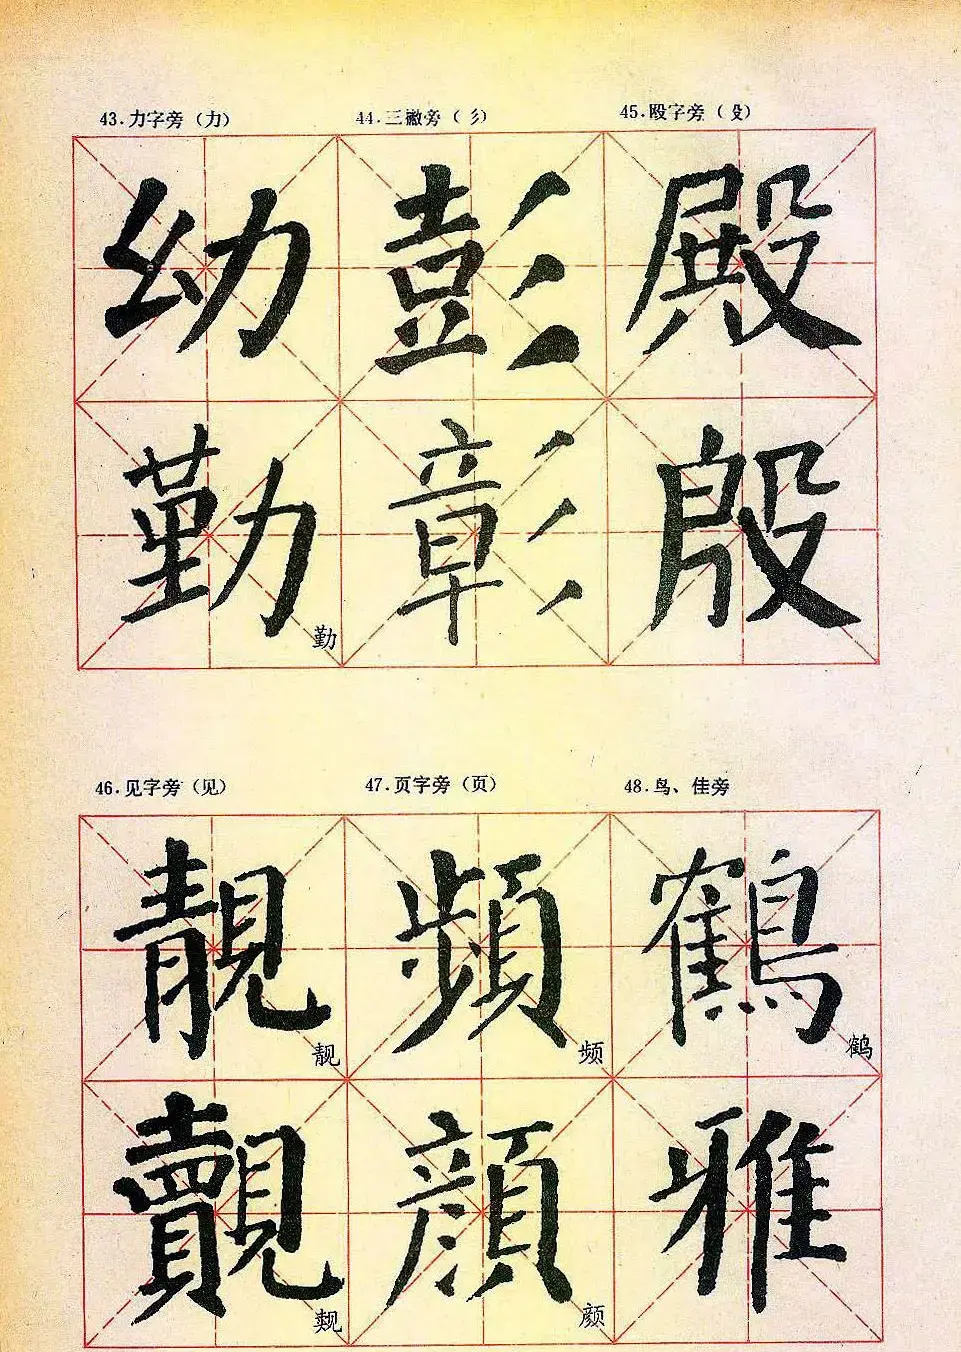 43.力字旁（力） 44.三撇旁（彡） 45.殴字旁（殳）
幼 彭 殿
勤 勤 彰 殷
46.见字旁（见） 47.页字旁（页） 48.鸟、佳旁
靚 靓 頻 频 鶴 鹤
覿 觌 顔 颜 雅